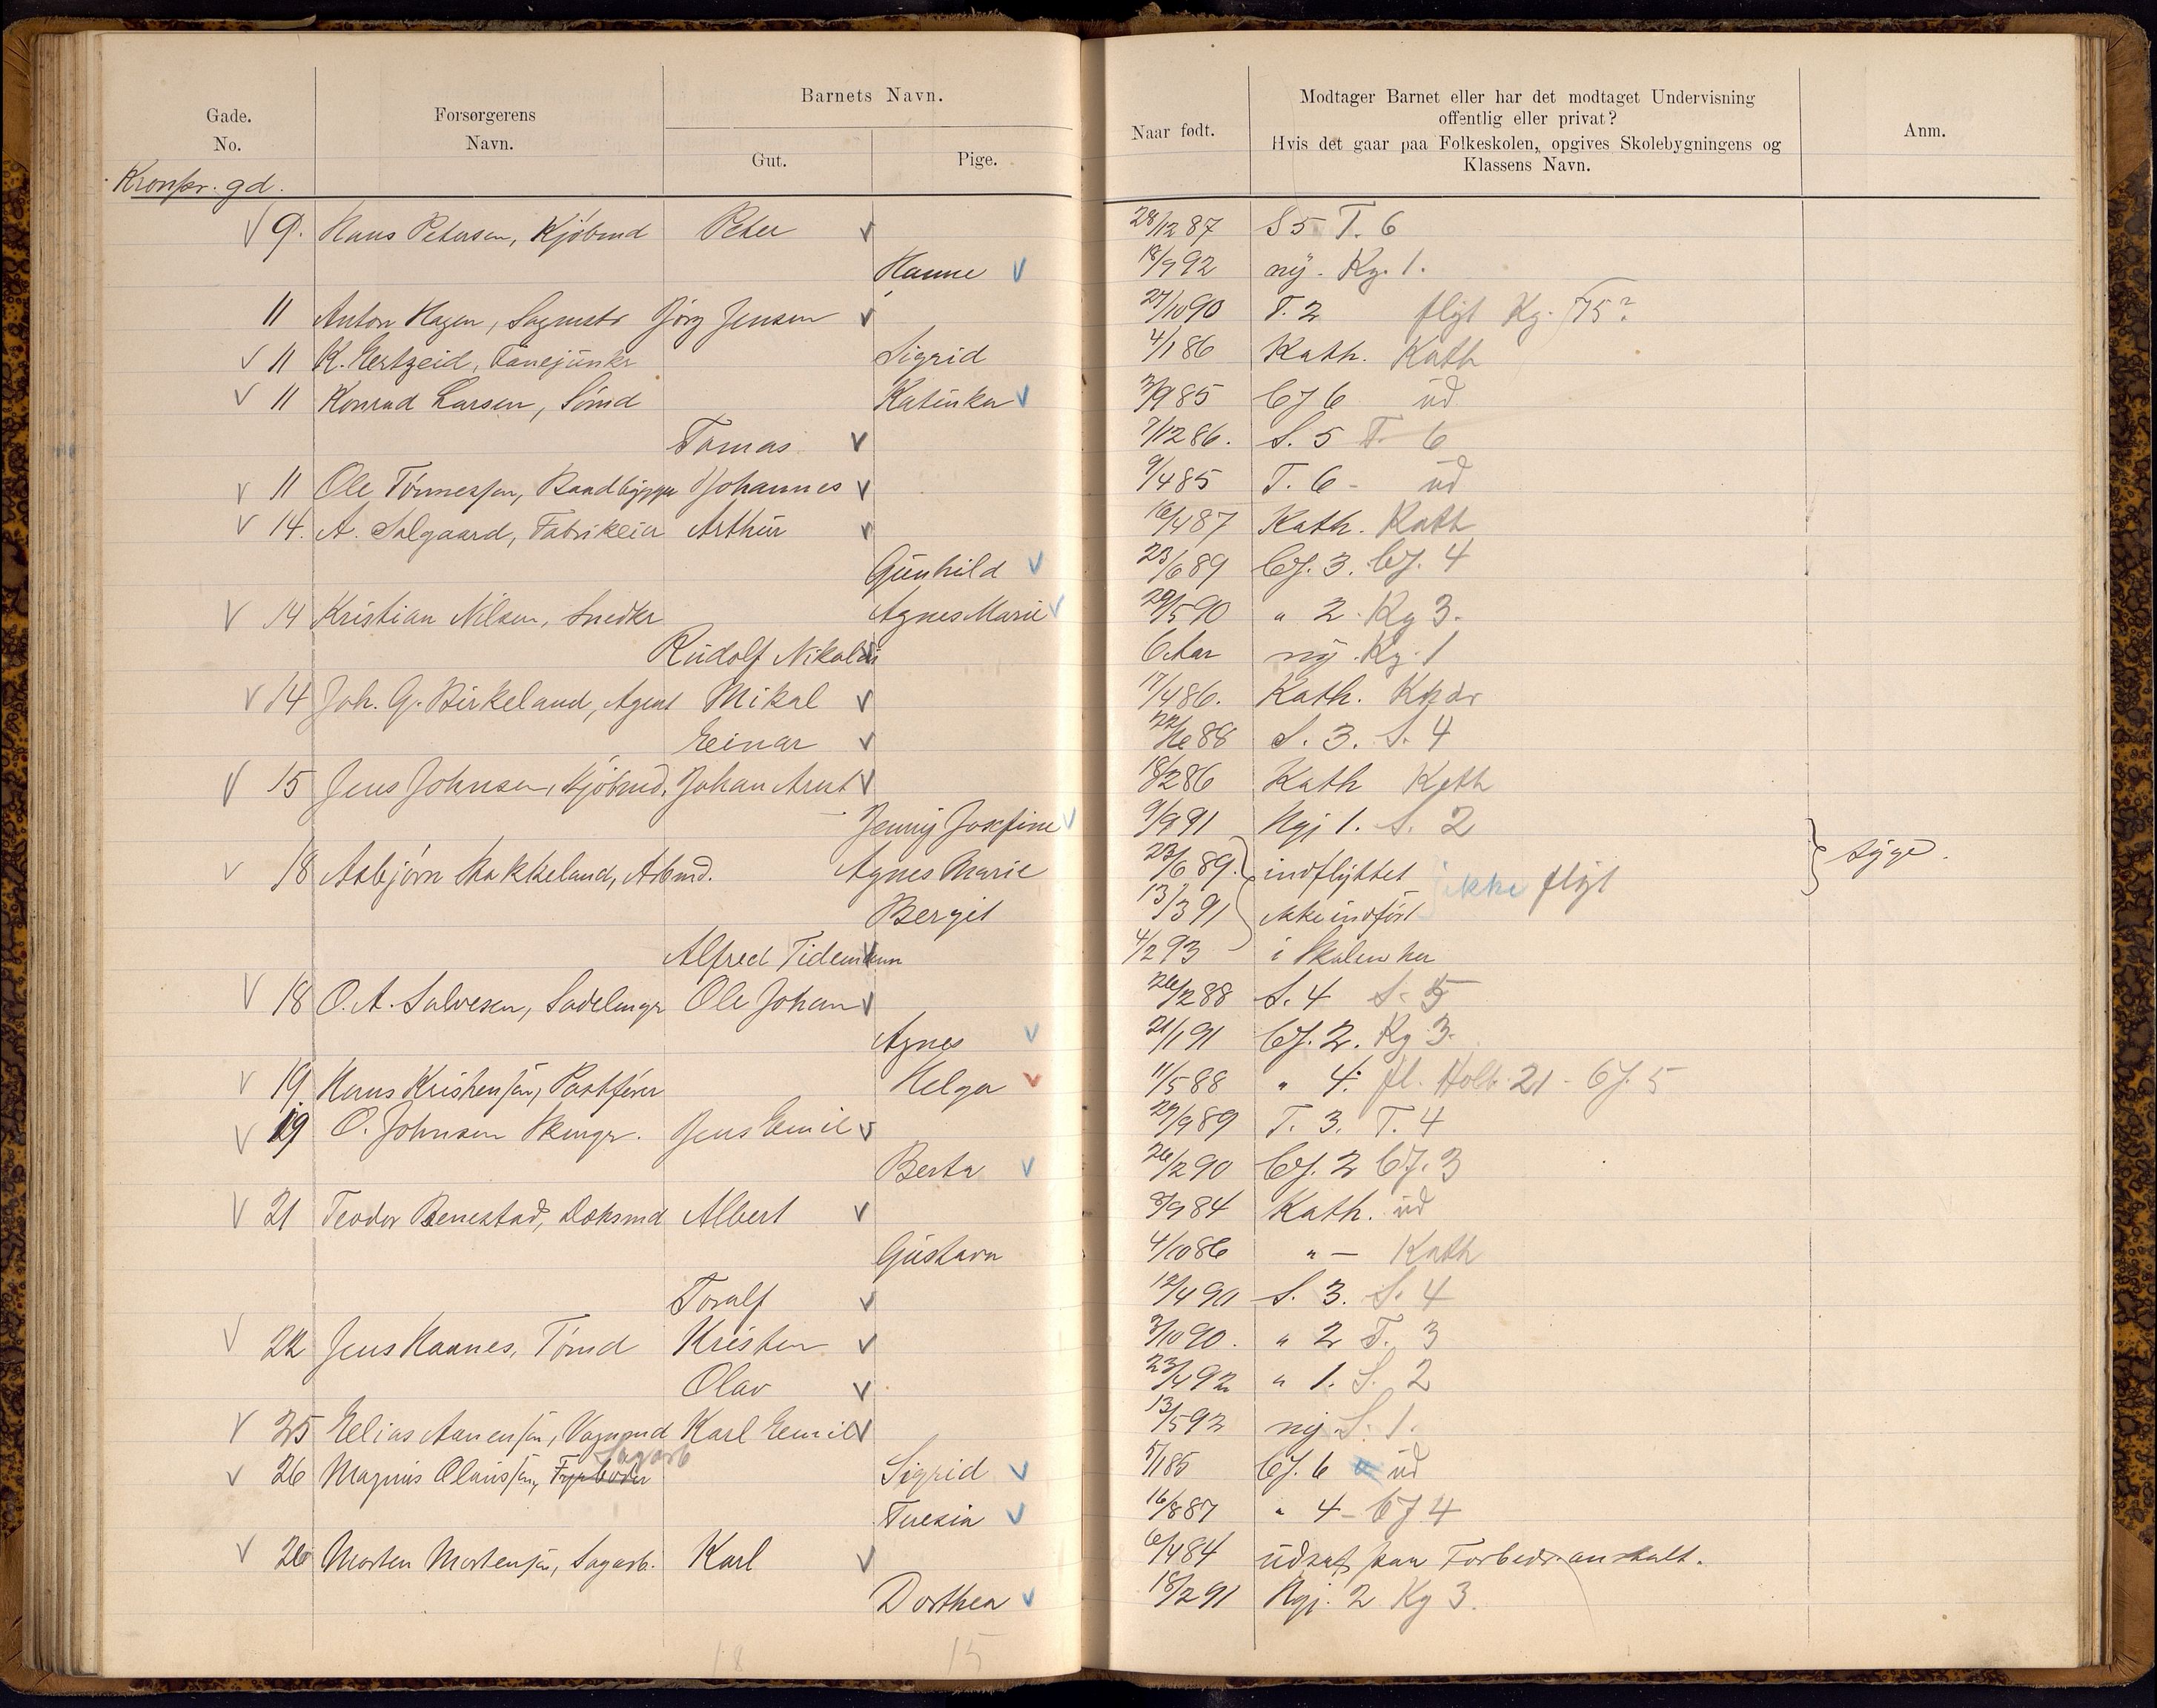 Gade.
No.
Forsørgerens
Navn.
Barnets Navn.
Gut.
Pige.
Naar født.
Modtager Barnet eller har det modtaget Undervisning
offentlig eller privat?
Hvis det gaar paa Folkeskolen, opgives Skolebygningens og
Klassens Navn.
Anm.
Kronpr. gd.
9. Hans Petersen, Kjøbmd Peter 28/12 87 S 5 T. 6
Hanne 18/9 92 ny. Kg. 1.
11 Anton Hagen, Sagmstr Jörg Jensen 27/10 90 T. 2 flyt Kg. 75?
11 K. Hertzeid, Fanejunkr Sigrid 4/1 86 Kath. Kath
11 Konrad Larsen, Sömd Katinka 3/9 85 CJ 6 ud
Tomas 7/12 86. S. 5 T. 6
11 Ole Tönnessen, Baadbygger Johannes 9/4 85 T. 6 - ud
14. A. Salgaard, Fabrikeier Arthur 16/4 87 Kath. Kath
Gunhild 23/6 89 CJ. 3. CJ. 4
14 Kristian Nilsen, Snedkr Agnes Marie 29/5 90 " 2. Kg 3.
Rudolf Nikolai 6 Aar ny. Kg. 1
14 Joh. G. Birkeland, Agent Mikal 17/4 86. Kath.
Einar 88 S. 3. S. 4
15 Jens Johnsen, Kjöbmd. Johan Arnt 18/2 86 Kath Kath
Jenny Josefine 9/9 91 Ngj 1. S. 2
18 Asbjörn Makkeland, Arbmd. Agnes Marie 23/6 89. indflyttet ikke flyt syge.
Bergit 13/3 91 ikke indført
Alfred Tidemann 4/2 93 i Skolen her
18 O. A. Salvesen, Sadelmgr Ole Johan 26/2 88 S. 4 S. 5
Agnes 21/1 91 CJ. 2. Kg 3.
19. Hans Kristensen, Postfører Helga 11/5 88 " 4. fl. Holb. 21 - CJ. 5
19 O. Johnsen Skmgr. Jens Emil 29/9 89 T. 3. T. 4
Berta 26/2 90 CJ. 2 CJ. 3
21 Teodor Benestad, Doksmd Albert 8/9 84 Kath. ud
Gustava 4/10 86 " — Kath
Toralf 12/4 90 S. 3. S. 4
22 Jens Haanes, Tömd Kristen 3/10 90. " 2 T. 3
Olav 23/4 92 " 1. S. 2
25 Elias Aanensen, Vognmd Karl Emil 13/5 92 ny S. 1.
Sagarb
26 Magnus Olaussen, Sigrid 5/1 85 CJ. 6 ud
Teresia 16/8 87 " 4 - CJ 4
26 Morten Mortensen, Sagarb. Karl 6/4 84 udsat paa Forbedr.anstalt.
Dorthea 18/2 91 Ngj. 2 Kg 3.
18 15